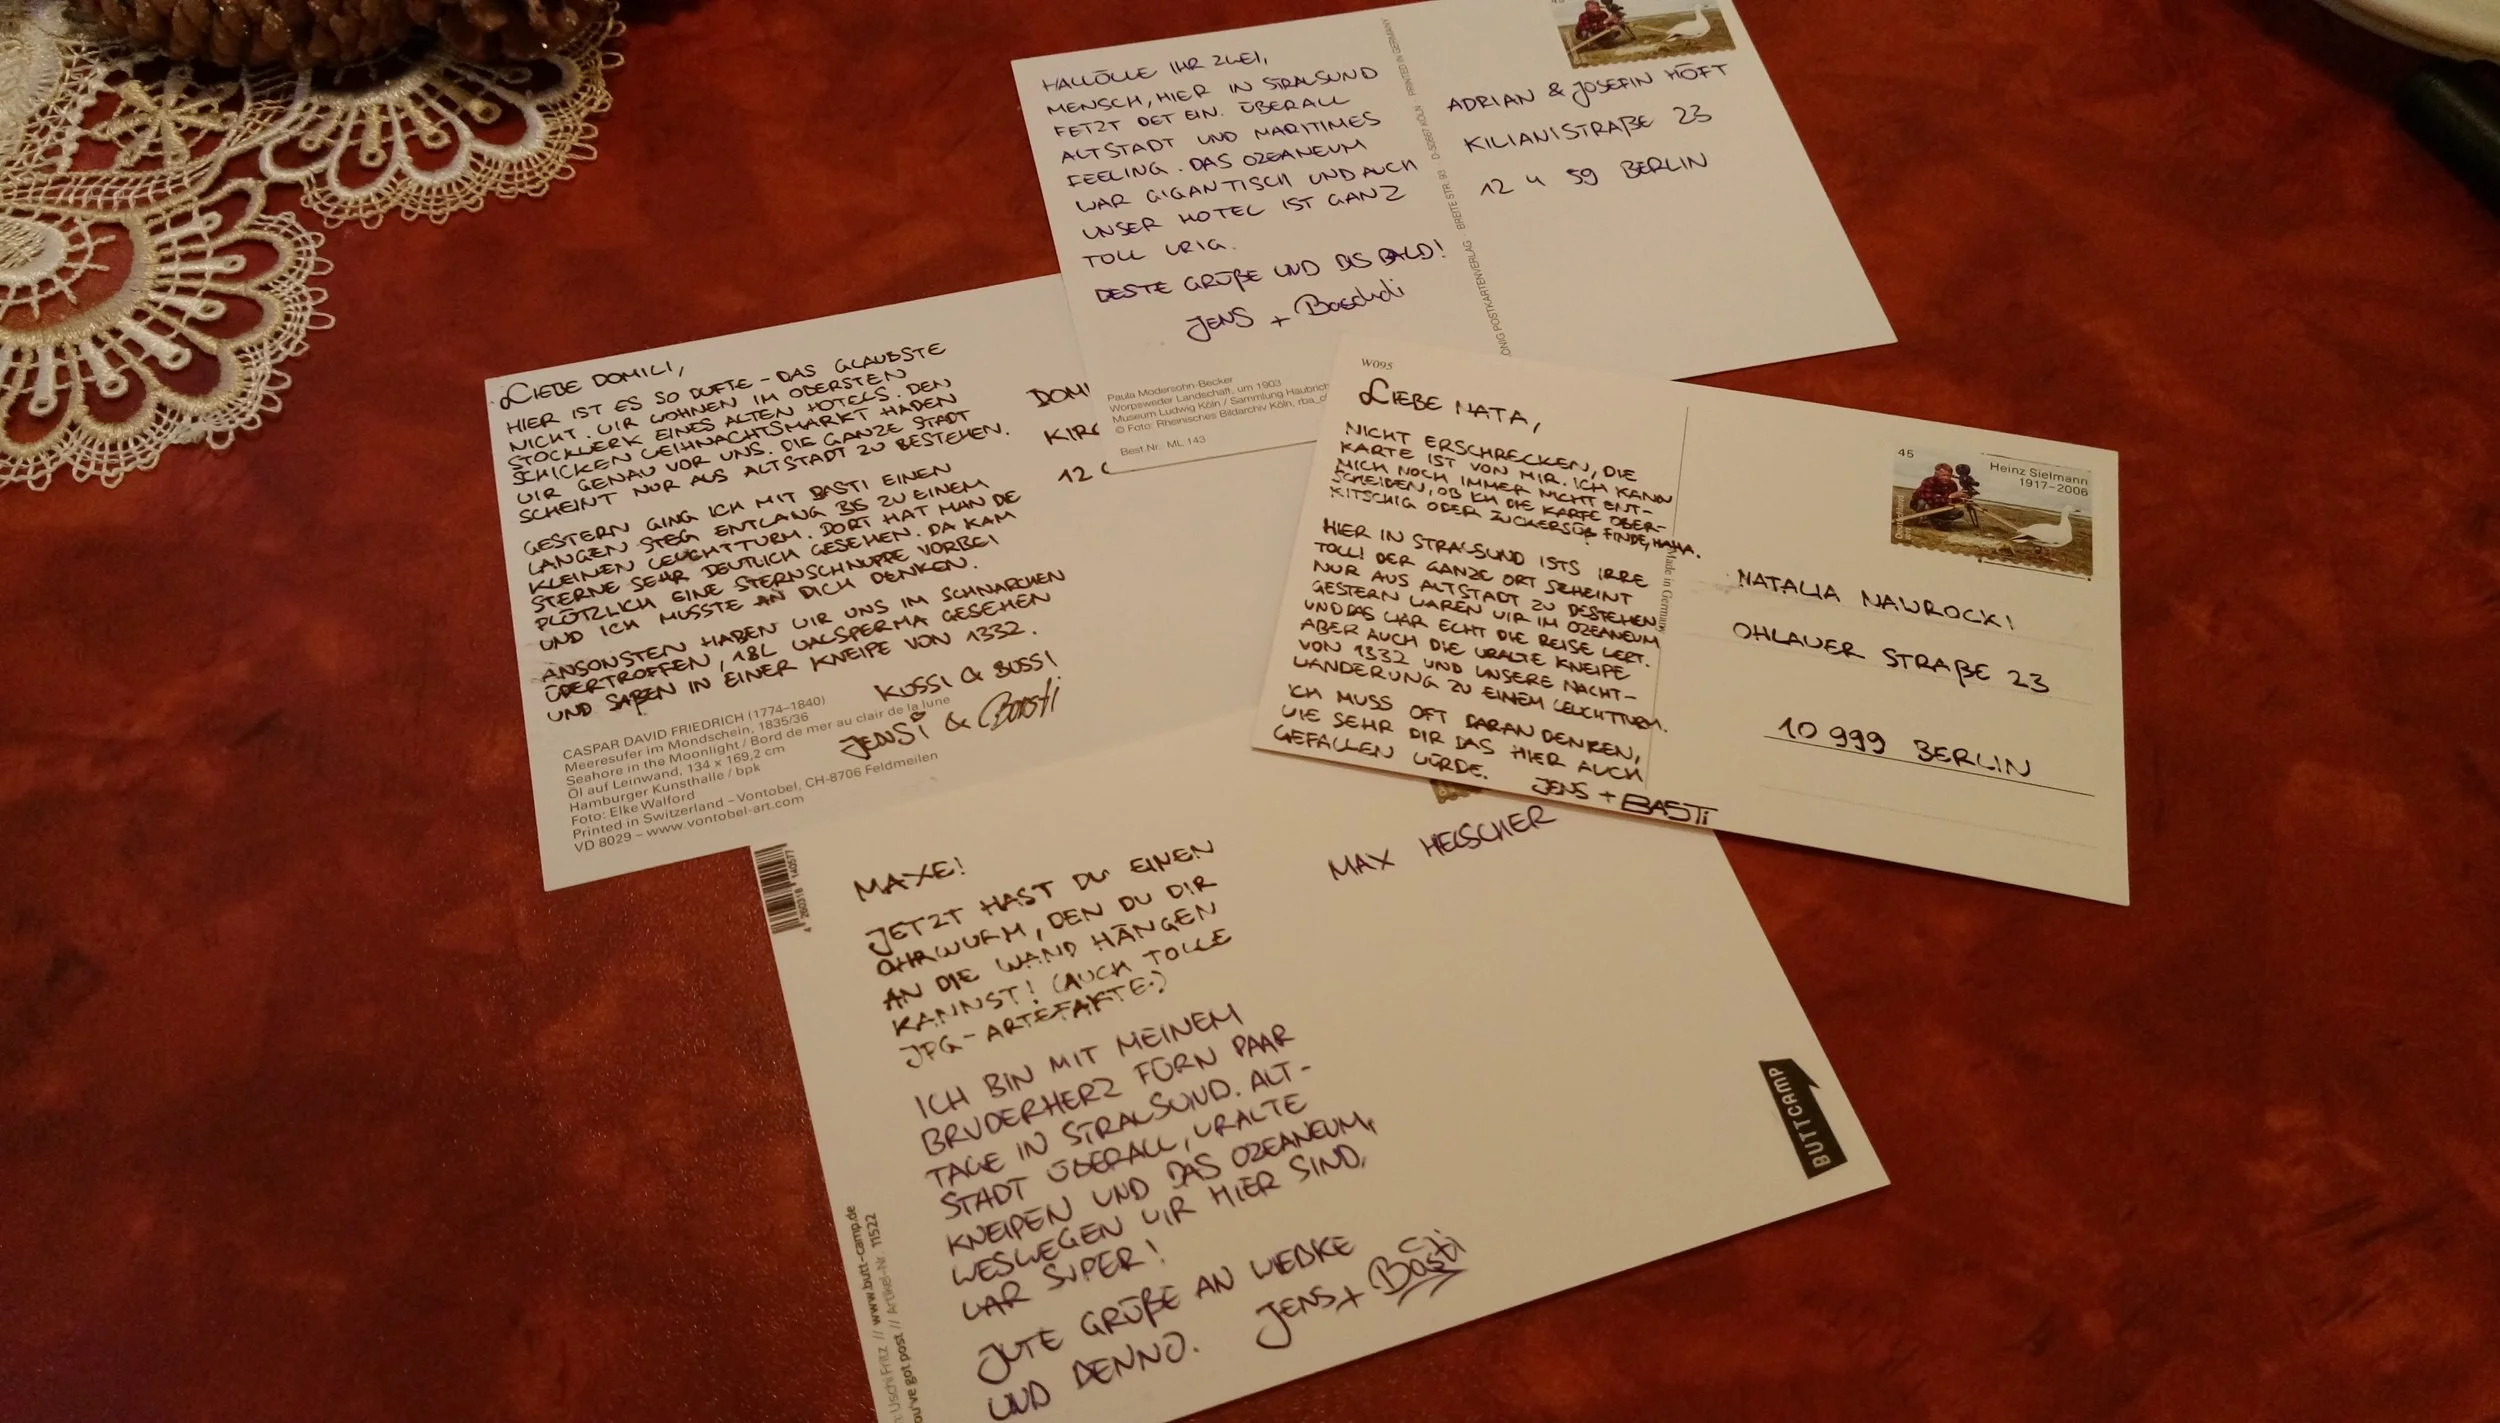 HALLÖLLE IHR ZWEI,
MENSCH, HIER IN STRALSUND
FETZT DET EIN. ÜBERALL
ALTSTADT UND MARITIMES
FEELING. DAS OZEANEUM
WAR GIGANTISCH UND AUCH
UNSER HOTEL IST GANZ
TOLL URIG.
BESTE GRÜßE UND BIS BALD!
JENS +
Paula Modersohn-Becker
Worpsweder Landschaft, um 1903
Museum Ludwig Köln / Sammlung Haubrich
© Foto: Rheinisches Bildarchiv Köln, rba_
Best Nr. ML 143
POSTKARTENVERLAG BREITE STR. 93 D-50667 KÖLN PRINTED IN GERMANY
ADRIAN & JOSEFIN HÖFT
KILIANISTRAßE 23
12 4 59 BERLIN
LIEBE DOMILI,
HIER IST ES SO DUFTE - DAS GLAUBSTE
NICHT. WIR WOHNEN IM OBERSTEN
STOCKWERK EINES ALTEN HOTELS. DEN
SCHICKEN WEIHNACHTSMARKT HABEN
WIR GENAU VOR UNS. DIE GANZE STADT
SCHEINT NUR AUS ALTSTADT ZU BESTEHEN.
GESTERN GING ICH MIT BASTI EINEN
LANGEN STEG ENTLANG BIS ZU EINEM
KLEINEN LEUCHTTURM. DORT HAT MAN DE
STERNE SEHR DEUTLICH GESEHEN. DA KAM
PLÖTZLICH EINE STERNSCHNUPPE VORBEI
UND ICH MUSSTE AN DICH DENKEN.
ANSONSTEN HABEN WIR UNS IM SCHNARCHEN
ÜBERTROFFEN, 18L WALSPERMA GESEHEN
UND SAßEN IN EINER KNEIPE VON 1332.
KUSSI & BUSSI
JENSI & BASTI
CASPAR DAVID FRIEDRICH (1774–1840)
Meeresufer im Mondschein, 1835/36
Seahore in the Moonlight / Bord de mer au clair de la lune
Öl auf Leinwand, 134 x 169,2 cm
Hamburger Kunsthalle / bpk
Foto: Elke Walford
Printed in Switzerland – Vontobel, CH-8706 Feldmeilen
VD 8029 – www.vontobel-art.com
DOMI
KIRC
12
W095
LIEBE NATA,
NICHT ERSCHRECKEN, DIE
KARTE IST VON MIR. ICH KANN
MICH NOCH IMMER NICHT ENT-
SCHEIDEN, OB ICH DIE KARTE OBER-
KITSCHIG ODER ZUCKERSÜß FINDE, HAHA.
HIER IN STRALSUND ISTS IRRE
TOLL! DER GANZE ORT SCHEINT
NUR AUS ALTSTADT ZU BESTEHEN
GESTERN WAREN WIR IM OZEANEUM
UND DAS WAR ECHT DIE REISE WERT.
ABER AUCH DIE URALTE KNEIPE
VON 1332 UND UNSERE NACHT-
WANDERUNG ZU EINEM LEUCHTTURM.
ICH MUSS OFT DARAN DENKEN,
WIE SEHR DIR DAS HIER AUCH
GEFALLEN WÜRDE.
JENS + BASTI
Made in Germany
45
Heinz Sielmann
1917–2006
Deutschland
NATALIA NAWROCKI
OHLAUER STRAßE 23
10 999 BERLIN
MAXE!
JETZT HAST DU EINEN
OHRWURM, DEN DU DIR
AN DIE WAND HÄNGEN
KANNST! (AUCH TOLLE
JPG-ARTEFAKTE.)
ICH BIN MIT MEINEM
BRUDERHERZ FÜRN PAAR
TAGE IN STRALSUND. ALT-
STADT ÜBERALL, URALTE
KNEIPEN UND DAS OZEANEUM,
WESWEGEN WIR HIER SIND,
WAR SUPER!
JUTE GRÜßE AN WIEBKE
UND DENNO.
JENS + BASTI
MAX HELSCHER
BUTTCAMP
4 260318 140577
Uschi Fritz // www.butt-camp.de
ou've got post // Artikel-Nr. 11522